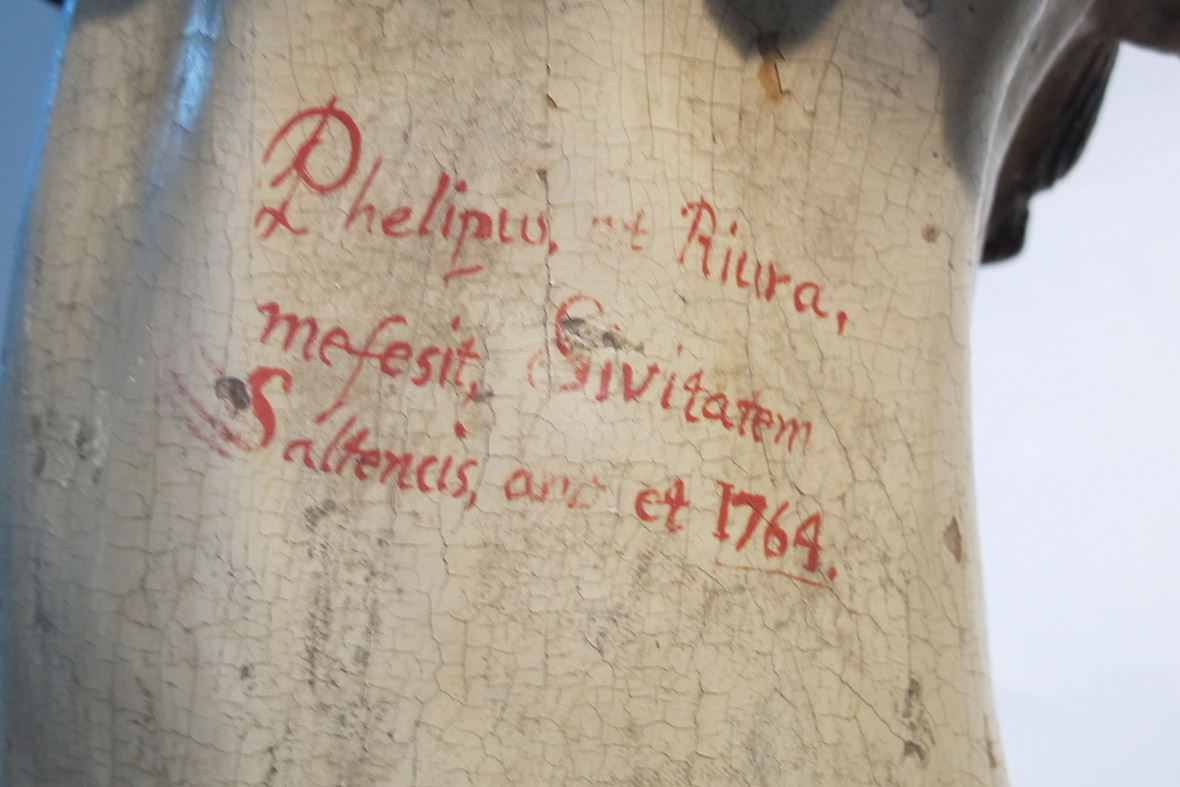 Phelipus, et Riura,
mefesit, Sivitatem
Saltencis, ano et 1764.